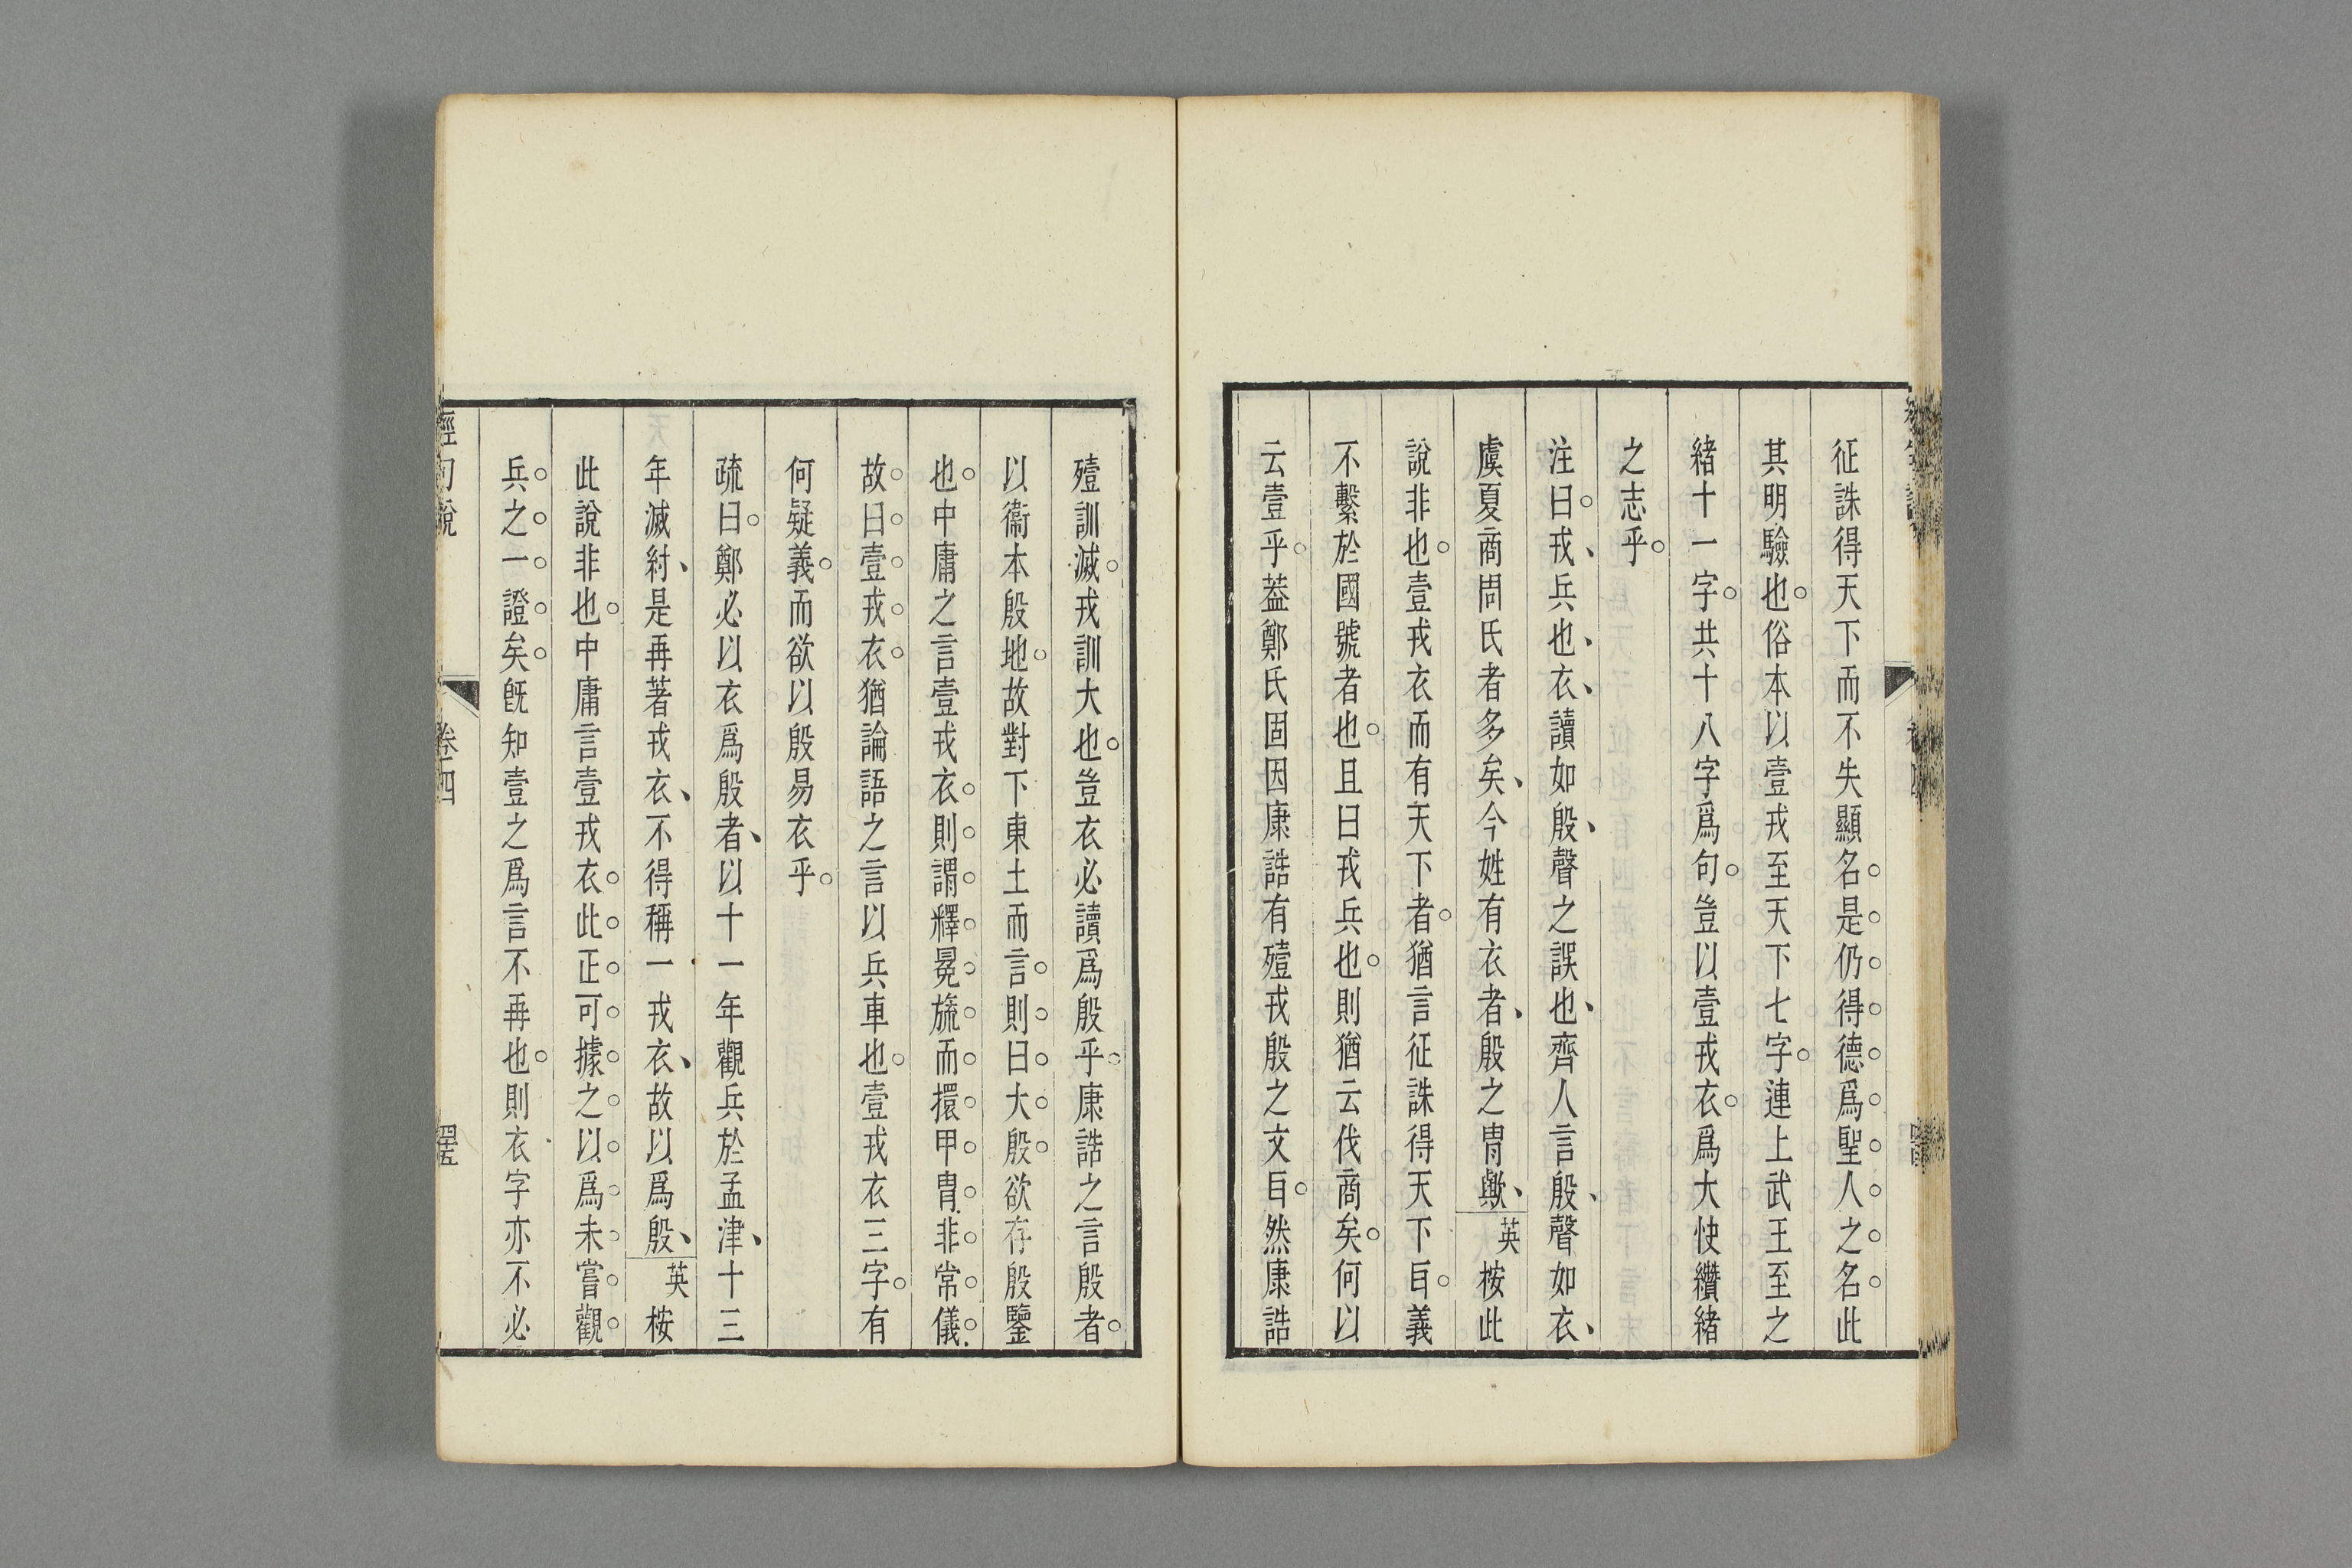 征誅得天下而不失顯名是仍得德爲聖人之名此
其明驗也俗本以壹戎至天下七字連上武王至之
緒十一字共十八字爲句豈以壹戎衣爲大快纘緒
之志乎
注曰戎兵也衣讀如殷聲之誤也齊人言殷聲如衣
虞夏商周氏者多矣今姓有衣者殷之胄歟英桉此
說非也壹戎衣而有天下者猶言征誅得天下㠯義
不繫於國號者也且曰戎兵也則猶云伐商矣何以
云壹乎葢鄭氏固因康誥有殪戎殷之文㠯然康誥
殪訓滅戎訓大也豈衣必讀爲殷乎康誥之言殷者
以衞本殷地故對下東土而言則曰大殷欲存殷鑒
也中庸之言壹戎衣則謂釋冕旒而擐甲胄非常儀
故曰壹戎衣猶論語之言以兵車也壹戎衣三字有
何疑義而欲以殷易衣乎
疏曰鄭必以衣爲殷者以十一年觀兵於孟津十三
年滅紂是再著戎衣不得稱一戎衣故以爲殷英桉
此說非也中庸言壹戎衣此正可據之以爲未嘗觀
兵之一證矣旣知壹之爲言不再也則衣字亦不必
經句說
卷四